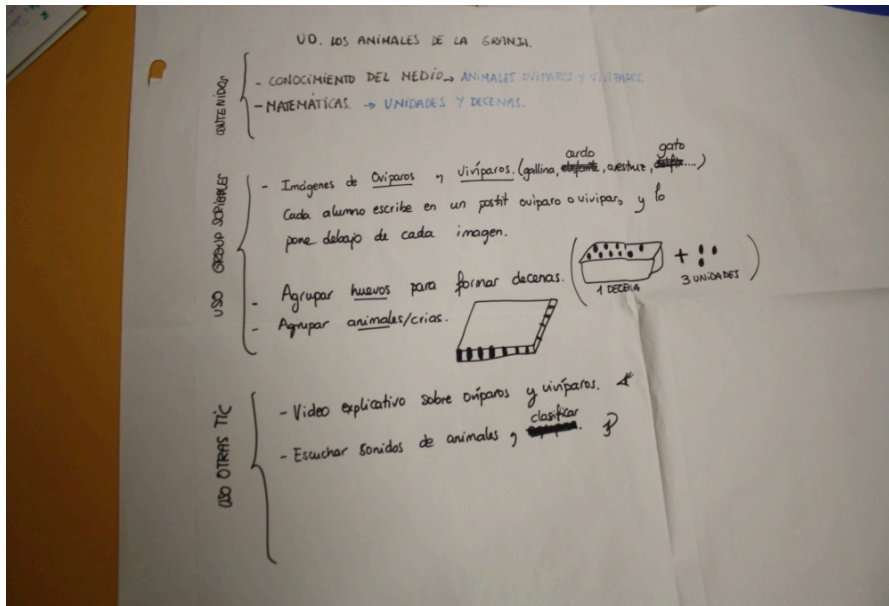 UD. LOS ANIMALES DE LA GRANJA.
CONTENIDOS
- CONOCIMIENTO DEL MEDIO → ANIMALES OVÍPAROS Y VIVÍPAROS.
- MATEMÁTICAS. → UNIDADES Y DECENAS.
USO GROUP SCRIBBLES
cerdo gato
- Imágenes de Ovíparos y Vivíparos. (gallina, elefante, avestruz, delfín....)
Cada alumno escribe en un postit oviparo o vivipar, y lo
pone debajo de cada imagen.
- Agrupar huevos para formar decenas.
( + )
1 DECENA 3 UNIDADES
- Agrupar animales/crias.
USO OTRAS TIC
- Video explicativo sobre ovíparos y vivíparos.
clasificar
- Escuchar sonidos de animales y